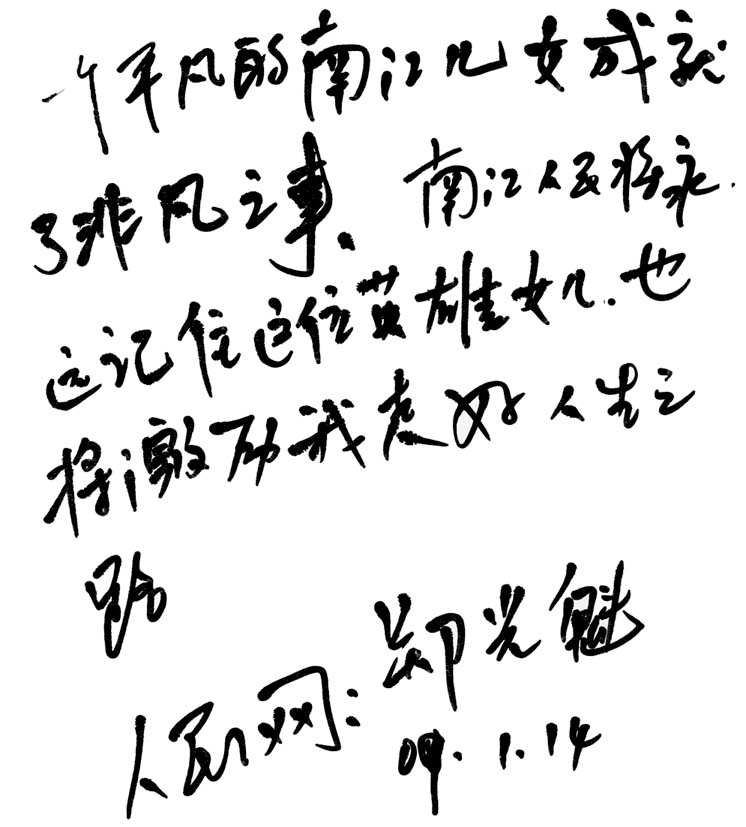 一个平凡的南江儿女成就
了非凡之事、南江人民将永
远记住这位英雄女儿.也
将激励我走好人生之
路
人民网：郑光魁
09.1.14